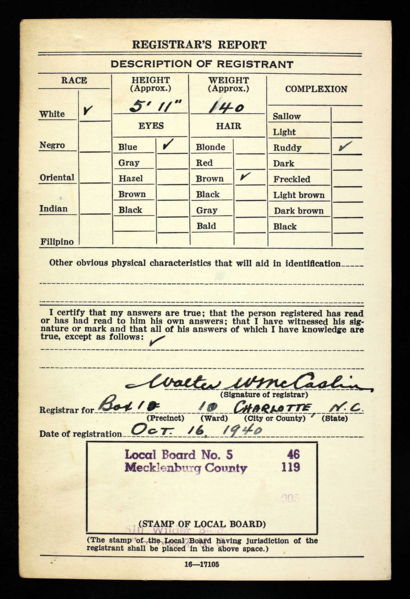 REGISTRAR'S REPORT
DESCRIPTION OF REGISTRANT
RACE
HEIGHT (Approx.)
WEIGHT (Approx.)
COMPLEXION
White ✓
5' 11"
140
Sallow
EYES
HAIR
Light
Negro
Blue ✓
Blonde
Ruddy ✓
Gray
Red
Dark
Oriental
Hazel
Brown ✓
Freckled
Brown
Black
Light brown
Indian
Black
Gray
Dark brown
Bald
Black
Filipino
Other obvious physical characteristics that will aid in identification
I certify that my answers are true; that the person registered has read
or has had read to him his own answers; that I have witnessed his sig-
nature or mark and that all of his answers of which I have knowledge are
true, except as follows: ✓
Walter W McCaslin
(Signature of registrar)
Registrar for Box 10 10 CHARLOTTE, N.C.
(Precinct) (Ward) (City or County) (State)
Date of registration Oct. 16, 1940
Local Board No. 5 46
Mecklenburg County 119
(STAMP OF LOCAL BOARD)
(The stamp of the Local Board having jurisdiction of the
registrant shall be placed in the above space.)
16—17105